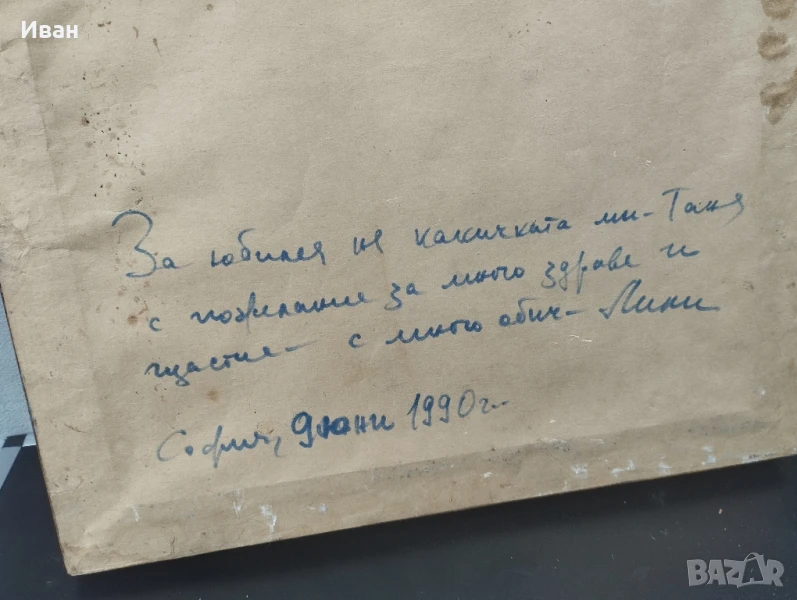 Иван
За юбилея на какичката ми - Таня
с пожелание за много здраве и
щастие - с много обич - Лини
София, 9 юни 1990 г.
BAZAR